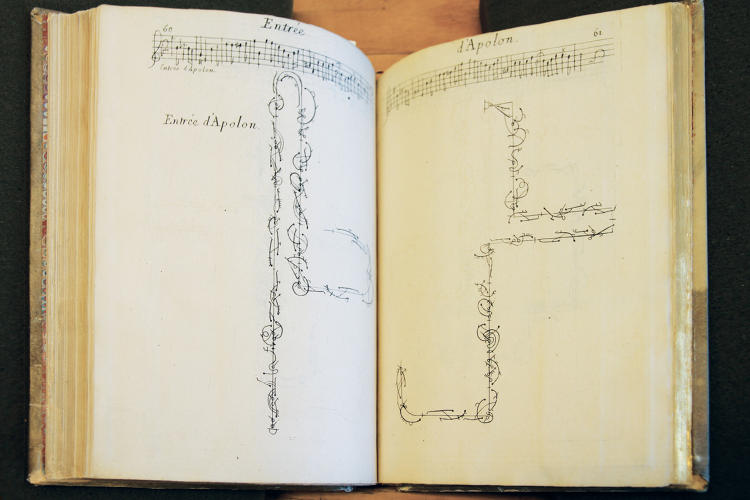 60
Entrée
Entrée d'Apolon.
Entrée d'Apolon.
d'Apolon.
61